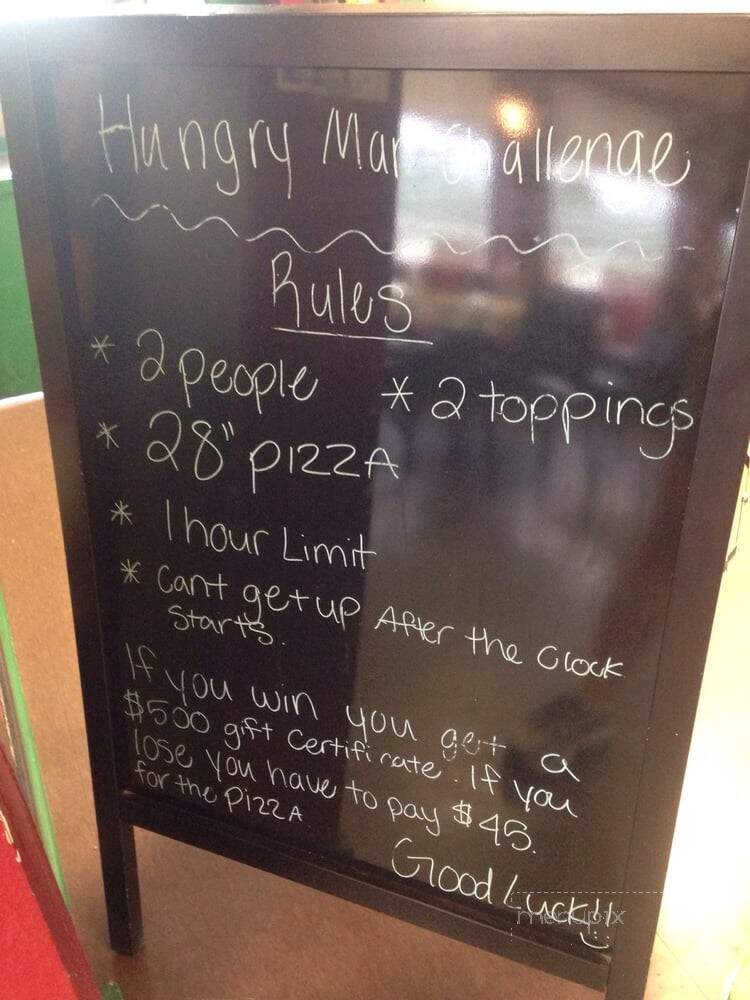 Hungry Man Challenge
Rules
* 2 people * 2 toppings
* 28" PIZZA
* 1 hour Limit
* Cant get up After the Clock
Starts.
If you win you get a
$500 gift Certificate. If you
lose you have to pay $45.
for the PIZZA
Good Luck!!
menupix